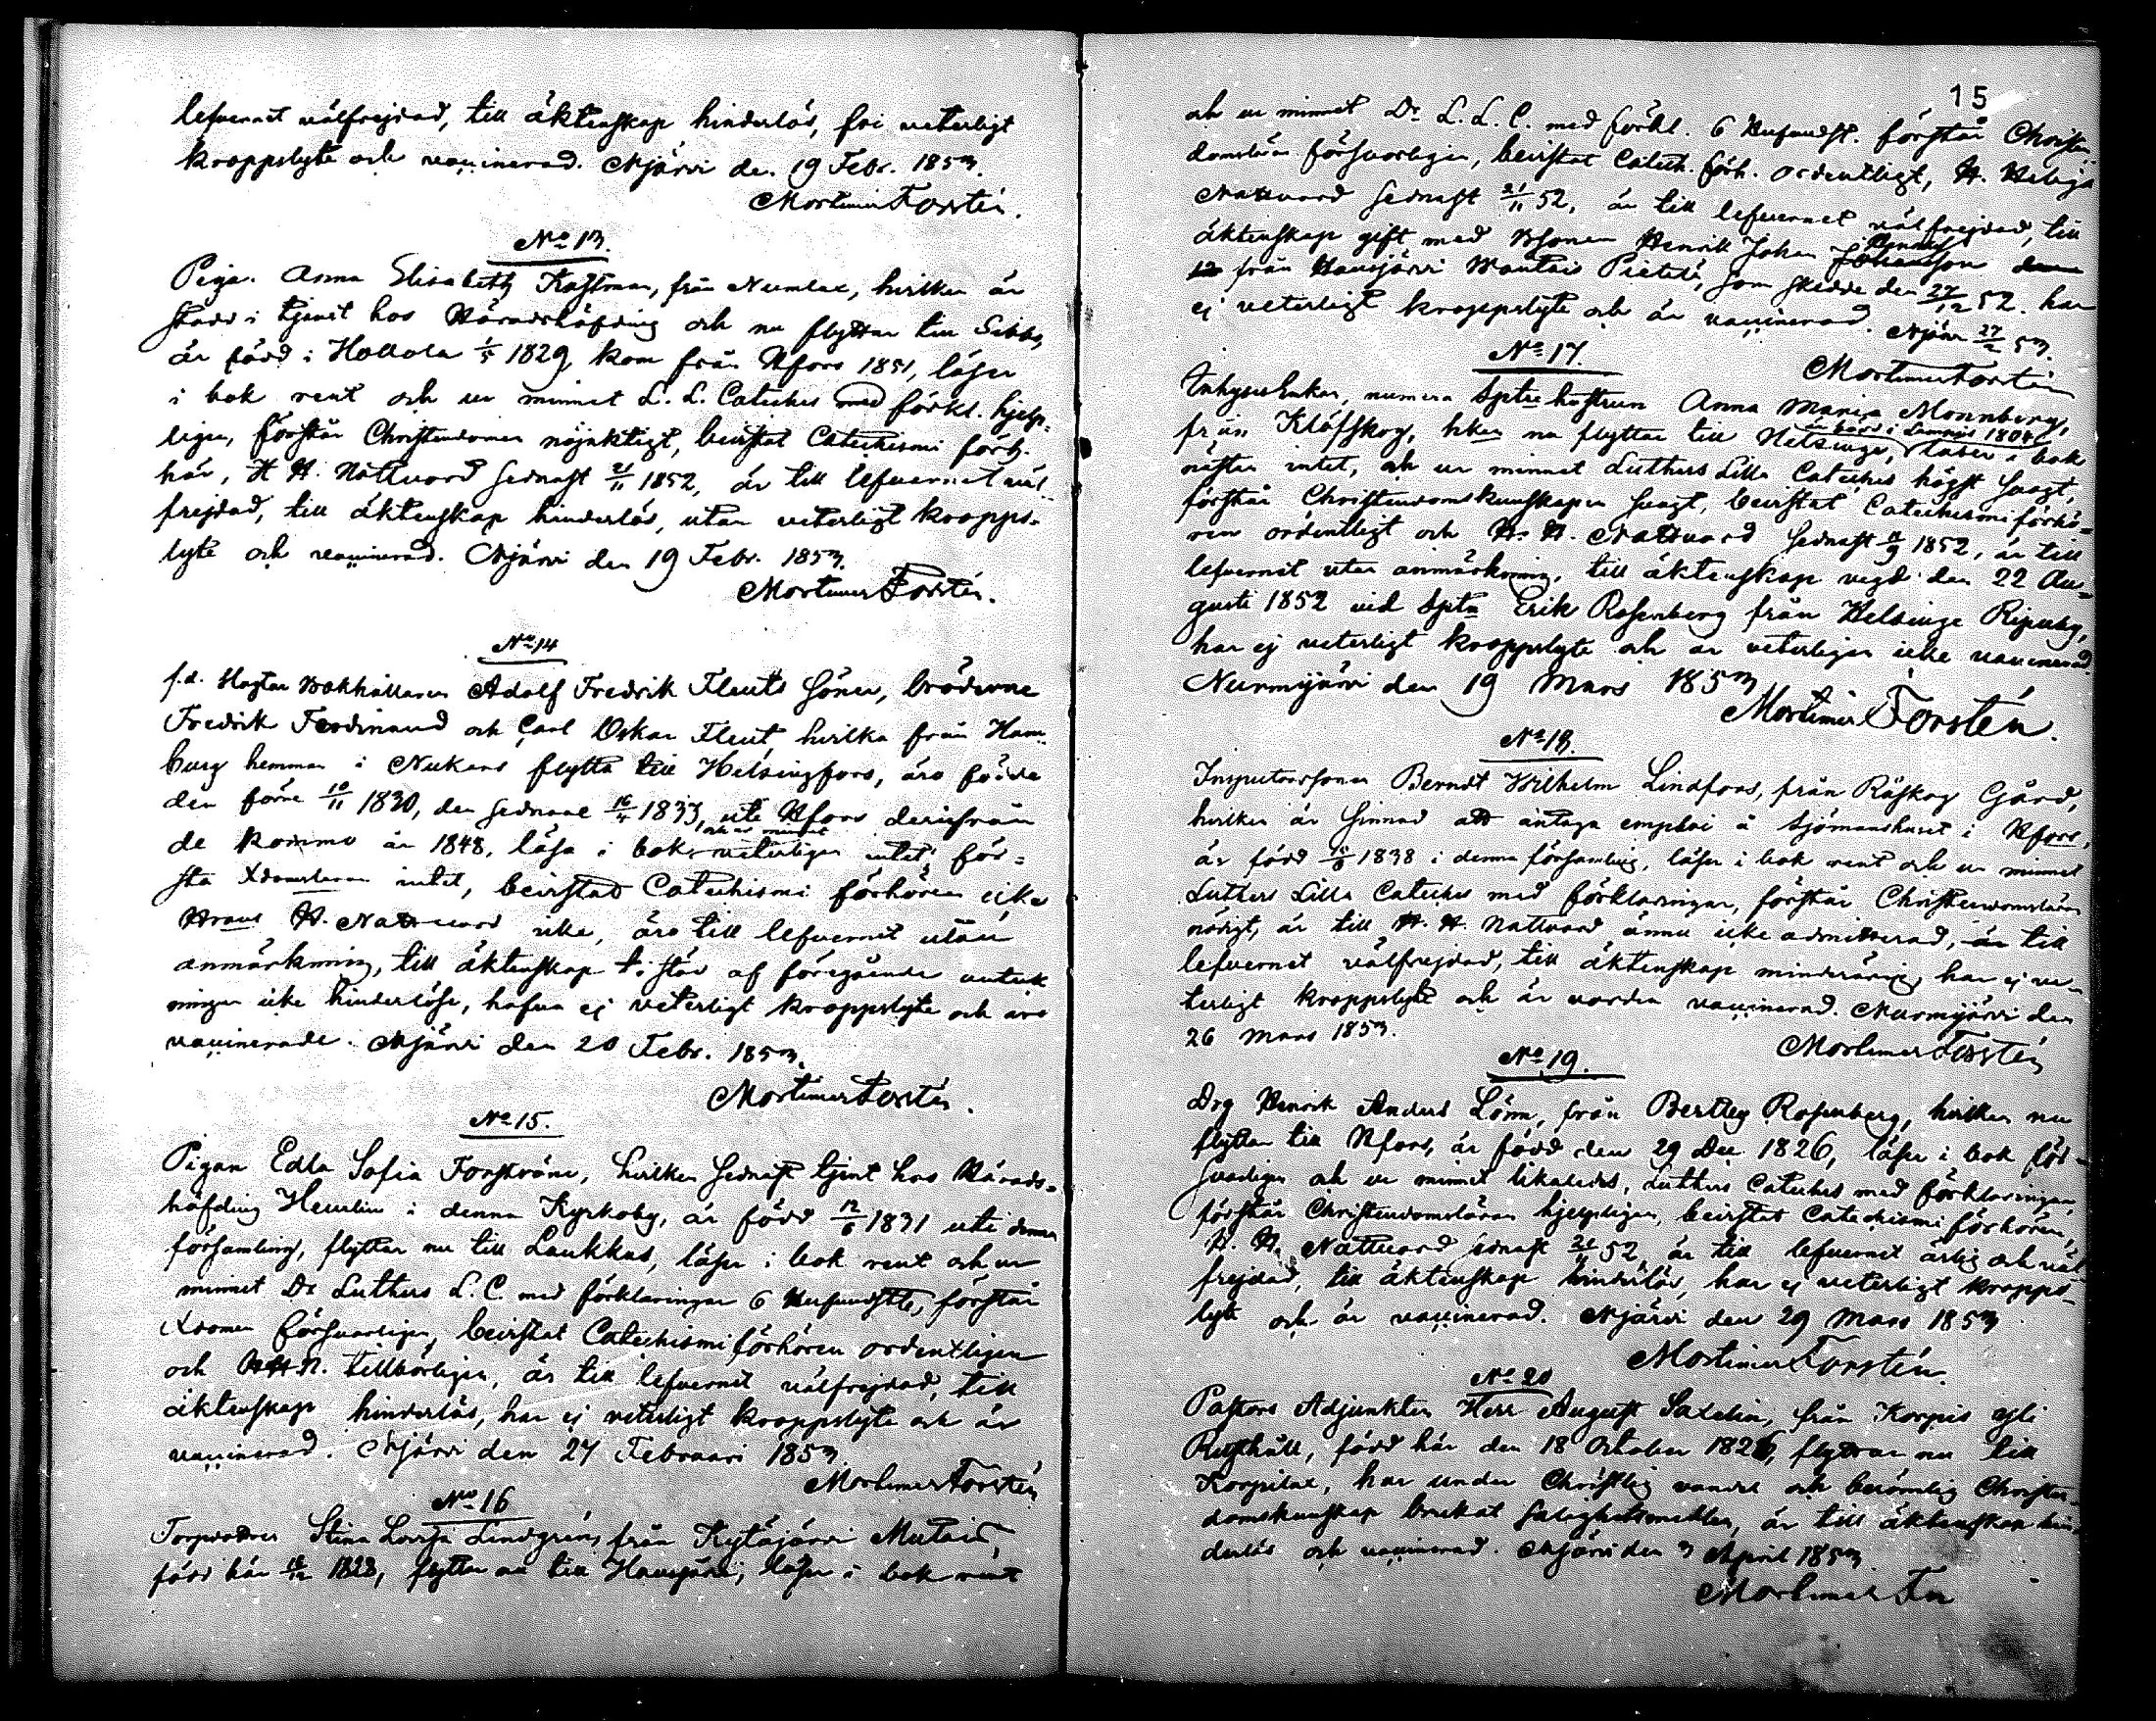 lefvernet välfrejdad, till äktenskap hinderlös, fri veterligt
kroppslyte och vaccinerad. Njärvi den 19 Febr. 1853.
Mortimer Forstén.
No 13.
Piga. Anna Elisabeth Kastman, från Numlax, hvilken är
stadd i tjenst hos Häradshöfding och nu flyttar till Sibbo,
är född i Hollola 1/5 1829, kom från Hfors 1851, läser
i bok rent och ur minnet L. L. Cateches med förkl. hjelp-
ligen, förstår Christendomen nöjaktigt, bevistat Catechismi förh.
här, H. H. Nattvard sednast 21/11 1852, är till lefvernet väl-
frejdad, till äktenskap hinderlös, utan veterligt kropps-
lyte och vaccinerad. Njärvi den 19 Febr. 1853.
Mortimer Forstén.
No 14
f.d. Bokhållaren Adolf Fredrik Flents söner, bröderne
Fredrik Ferdinand och Carl Oskar Flent, hvilka från Ham-
burg hemman i Nukars flytta till Helsingfors, äro födde
den förre 10/11 1830, den sednare 1833, uti Hfors derifrån
de kommo år 1848, läsa i bok och ur minnet veterligen intet, för-
stå Xdomsläran intet, bevistat Catechismi förhören icke
H. Nattvard icke, äro till lefvernet utan
anmärkning, till äktenskap i stöd af föregående anteck-
ningen icke hinderlöse, hafva ej veterligt kroppslyte och äro
vaccinerade. Njärvi den 20 Febr. 1853.
Mortimer Forstén.
No 15.
Pigan Edla Sofia Forsström, hvilken sednast tjent hos Härads-
höfding Heurlin i denna Kyrkoby, är född 12/6 1831 uti denna
församling, flyttar nu till Laukkas, läser i bok rent och ur
minnet Dr Luthers L. C. med förklaringar 6 Hufvudst., förstår
Xdomen försvarligen, bevistat Catechismi förhören ordentligen
och H. H. N. tillbörligen, är till lefvernet välfrejdad, till
äktenskap hinderlös, har ej veterligt kroppslyte och är
vaccinerad. Njärvi den 24 Februari 1853.
Mortimer Forstén
No 16
Torparedotter Stina Lovisa Lindgrén, från Kytäjärvi Mutais,
född här 1828, flyttar nu till Hausjärvi, läser i bok rent
15
och ur minnet Dr L. L. C. med förkl. 6 Hufvudst. förstår Christen-
domsläran försvarligen, bevistat Catech. förh. ordentligt, H. Heliga
Nattvard sednast 21/11 52, är till lefvernet välfrejdad, till
äktenskap gift med Bsonen Henrik Johan
från Hausjärvi Mantais Pietilä, som skedde den 27/12 52. har
ej veterligt kroppslyte och är vaccinerad. Njärvi 27/2 53.
No 17.
Mortimer Forstén
Inhyseenkan, numera hustrun Anna Maria Monnberg,
från Klöfskog, hken nu flyttar till Helsinge, är född i 1804 läser i bok
nästan intet, och ur minnet Luthers Lilla Cateches högst svagt,
förstår Christendomskunskapen svagt, bevistat Catechismi förhö-
ren ordentligt och H. H. Nattvard sednast 1852, är till
lefvernet utan anmärkning, till äktenskap vigd den 22 Au-
gusti 1852 vid Erik Rosenberg från Helsinge Ripuby,
har ej veterligt kroppslyte och är veterligen icke vaccinerad.
Nurmijärvi den 19 Mars 1853
Mortimer Forstén.
No 18.
Inspectorssonen Berndt Wilhelm Lindfors, från Råskog Gård,
hvilken är sinnad att antaga emploi å Sjömanshuset i Hfors,
är född 1838 i denna församling, läser i bok rent och ur minnet
Luthers Lilla Cateches med förklaringar, förstår Christendomsläran
nödigt, är till H. H. Nattvard ännu icke admitterad, är till
lefvernet välfrejdad, till äktenskap minderårig, har ej ve-
terligt kroppslyte och är vorden vaccinerad. Nurmijärvi den
26 Mars 1853.
Mortimer Forstén
No 19.
Drg Henrik Anders Lönn, från Bertby Rosenberg, hvilken nu
flyttar till Hfors, är född den 29 Dec 1826, läser i bok för-
svarligen och ur minnet likaledes, Luthers Cateches med förklaringar,
förstår Christendomsläran hjelpligen, bevistat Catechismi förhören,
H. H. Nattvard sednast 21/11 52, är till lefvernet ärlig och väl-
frejdad, till äktenskap hinderlös, har ej veterligt kropps-
lyte och är vaccinerad. Njärvi den 29 Mars 1853
Mortimer Forstén.
No 20
Pastors Adjunkten Herr August Saxelin, från Korpis
Rusthåll, född här den 18 October 1826, flyttar nu till
Korpilax, har under Christlig vandel och berömlig Christen-
domskunskap brukat Salighetsmedlen, är till äktenskap hin-
derlös och vaccinerad. Njärvi den 3 April 1853.
Mortimer Fn